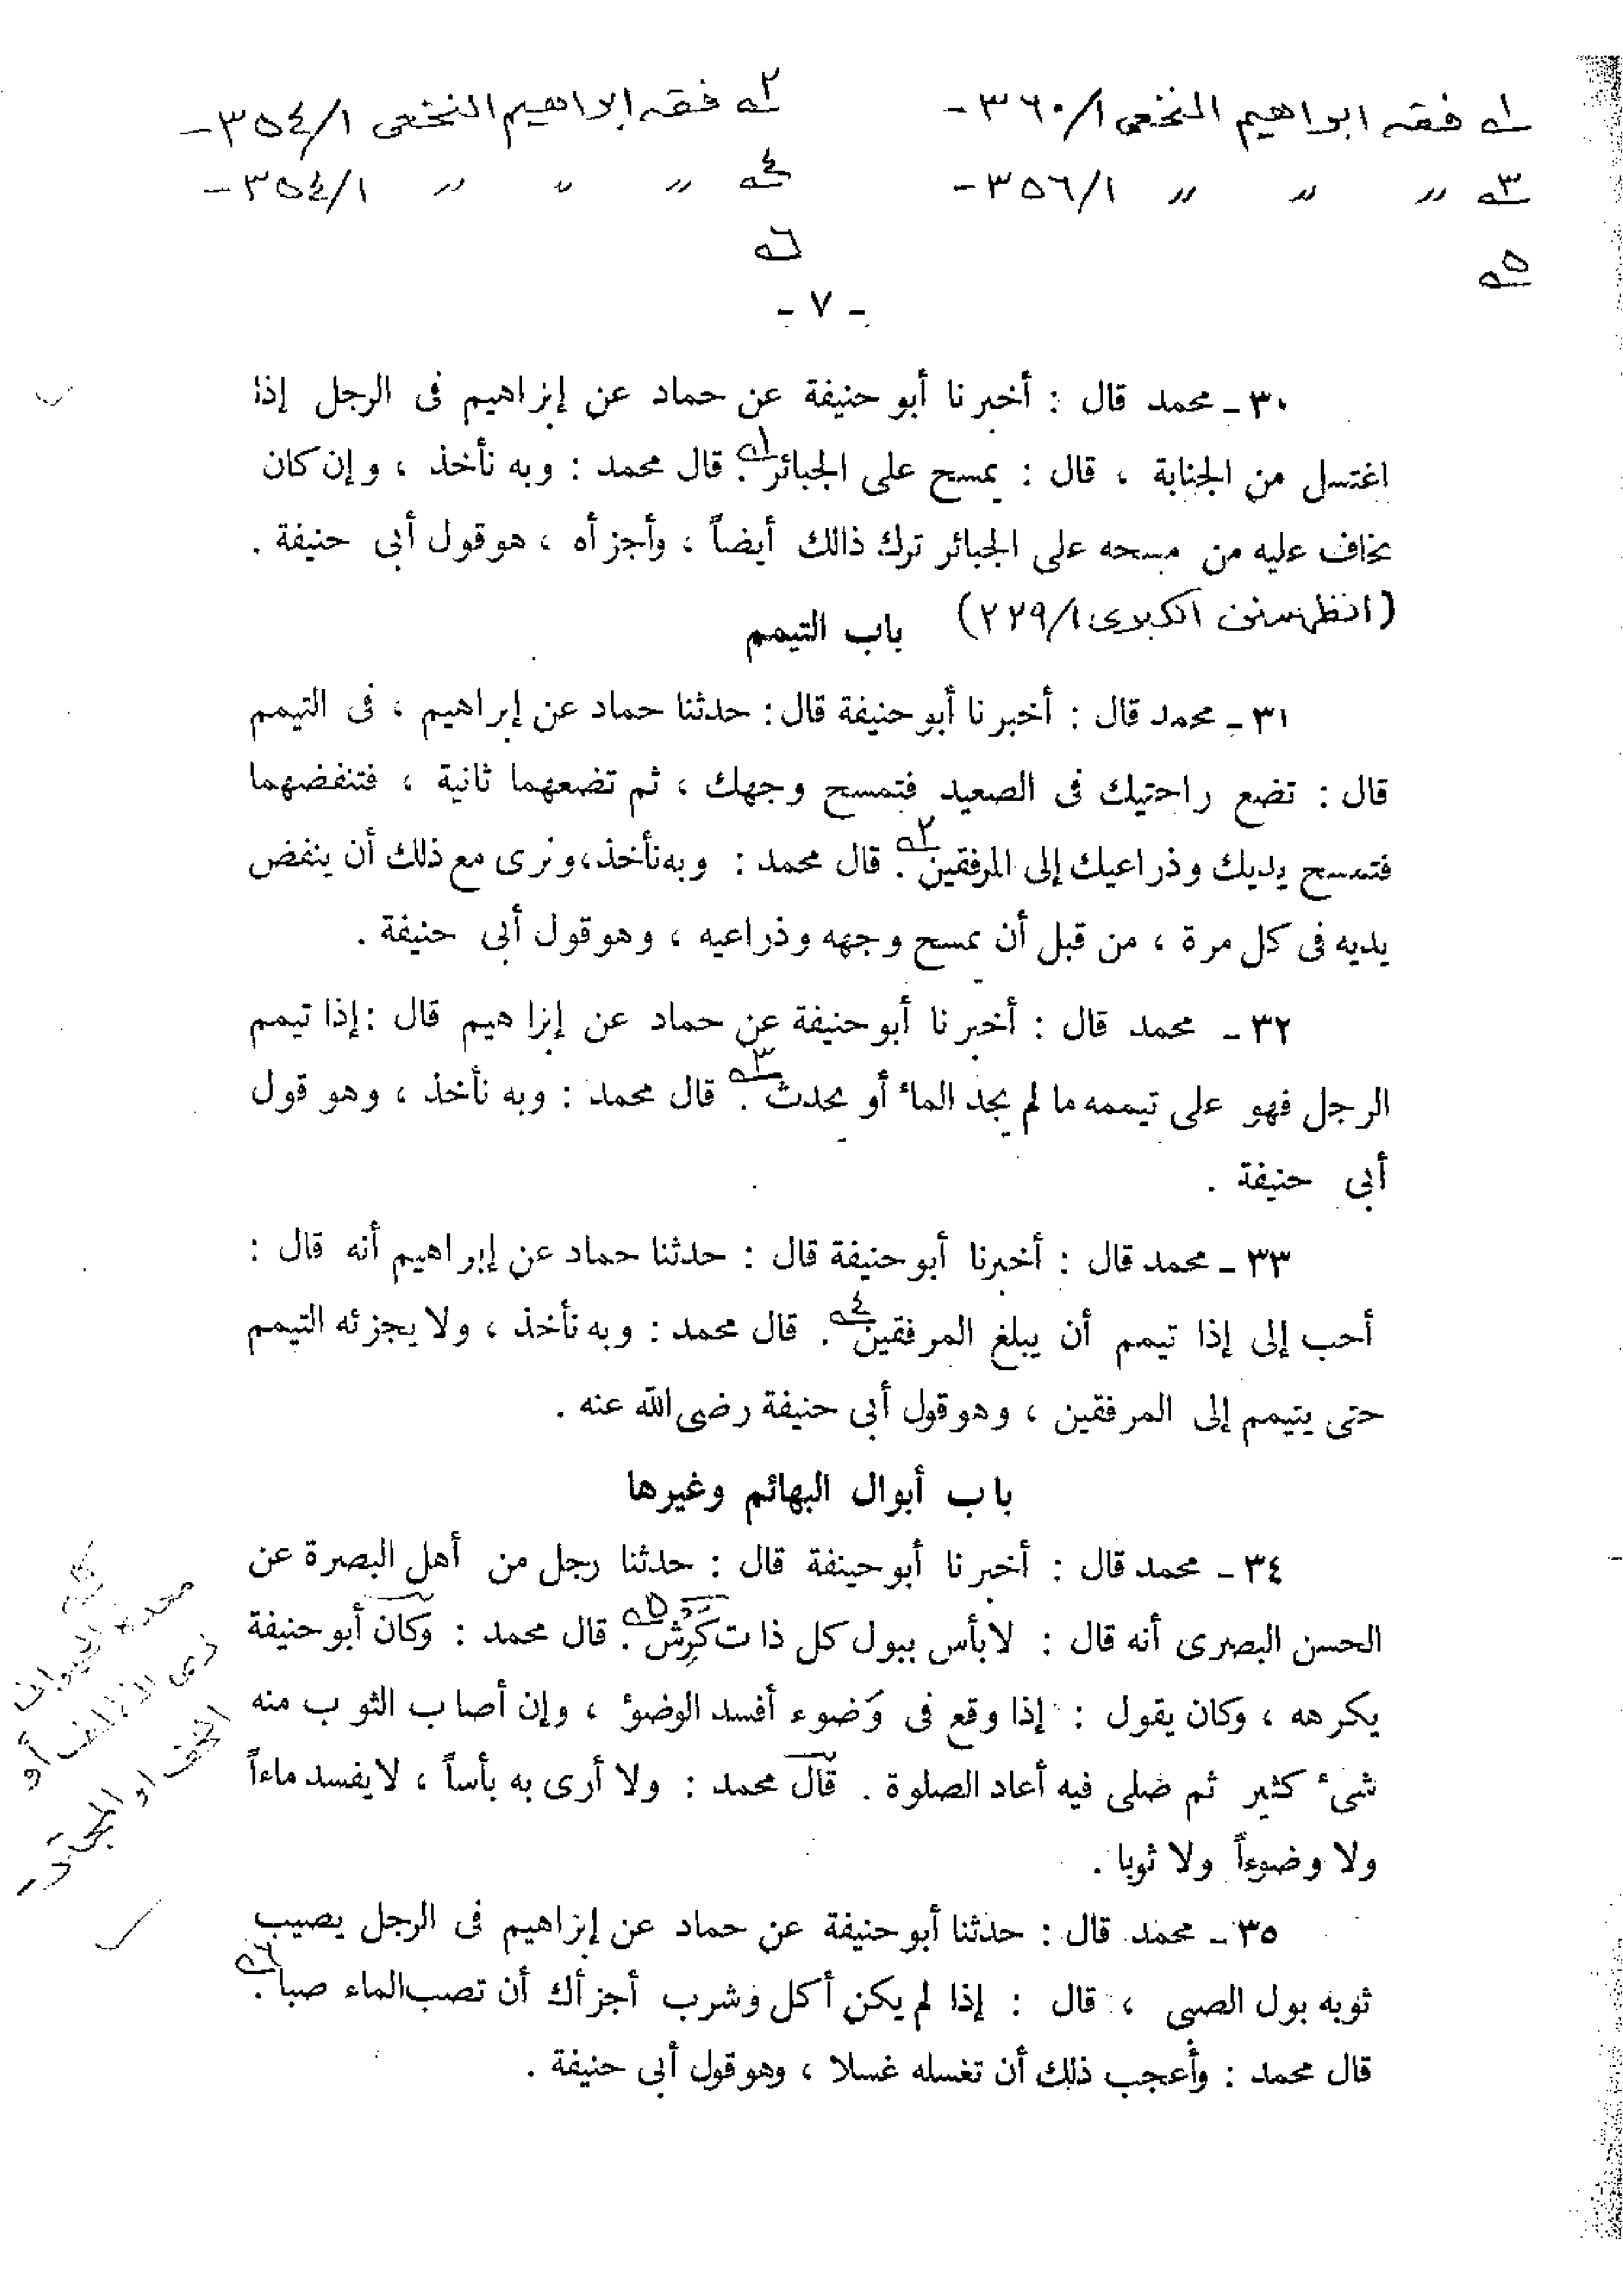 ١ـه فقه ابراهيم النخعي ٣٦٠/١-
٢ـه فقه إبراهيم النخعي ٣٥٤/١-
٣ـه " " " ٣٥٦/١-
٤ـه " " " ٣٥٤/١-
٥ـه
٦ـه
- ٧ -
٣٠ـ محمد قال : أخبرنا أبو حنيفة عن حماد عن إبراهيم فى الرجل إذا
اغتسل من الجنابة ، قال : يمسح على الجبائر١ـه. قال محمد : وبه نأخذ ، وإن كان
يخاف عليه من مسحه على الجبائر ترك ذالك أيضاً ، وأجزأه ، هو قول أبى حنيفة .
(انظر سنن الكبرى ٢٢٩/١)
باب التيمم
٣١ـ محمد قال : أخبرنا أبو حنيفة قال: حدثنا حماد عن إبراهيم ، فى التيمم
قال : تضع راحتيك فى الصعيد فتمسح وجهك ، ثم تضعهما ثانية ، فتنفضهما
فتمسح يديك وذراعيك إلى المرفقين٢ـه. قال محمد : وبه نأخذ، ونرى مع ذلك أن ينفض
يديه فى كل مرة ، من قبل أن يمسح وجهه وذراعيه ، وهو قول أبى حنيفة .
٣٢ـ محمد قال : أخبرنا أبو حنيفة عن حماد عن إبراهيم قال :إذا تيمم
الرجل فهو على تيممه ما لم يجد الماء أو يحدث٣ـه. قال محمد : وبه نأخذ ، وهو قول
أبى حنيفة .
٣٣ـ محمد قال : أخبرنا أبو حنيفة قال : حدثنا حماد عن إبراهيم أنه قال :
أحب إلى إذا تيمم أن يبلغ المرفقين٤ـه. قال محمد : وبه نأخذ ، ولا يجزئه التيمم
حتى يتيمم إلى المرفقين ، وهو قول أبى حنيفة رضى الله عنه .
باب أبوال البهائم وغيرها
٣٤ـ محمد قال : أخبرنا أبو حينفة قال : حدثنا رجل من أهل البصرة عن
الحسن البصرى أنه قال : لا بأس ببول كل ذات كَرِش٥ـه. قال محمد : وكان أبو حنيفة
يكرهه ، وكان يقول : إذا وقع فى وَضوء أفسد الوضوٴ ، وإن أصاب الثوب منه
شىٴ كثير ثم صلى فيه أعاد الصلوة . قال محمد : ولا أرى به بأساً ، لا يفسد ماءاً
ولا وضوءاً ولا ثوبا .
٣٥ـ محمد قال : حدثنا أبو حنيفة عن حماد عن إبراهيم فى الرجل يصيب
ثوبه بول الصبى ، قال : إذا لم يكن أكل وشرب أجزأك أن تصب الماء صبا٦ـه.
قال محمد : وأعجب ذلك أن تغسله غسلا ، وهو قول أبى حنيفة .
كرش
معدة الحيوان
ذى الظلف أو
الخف او المجتر-